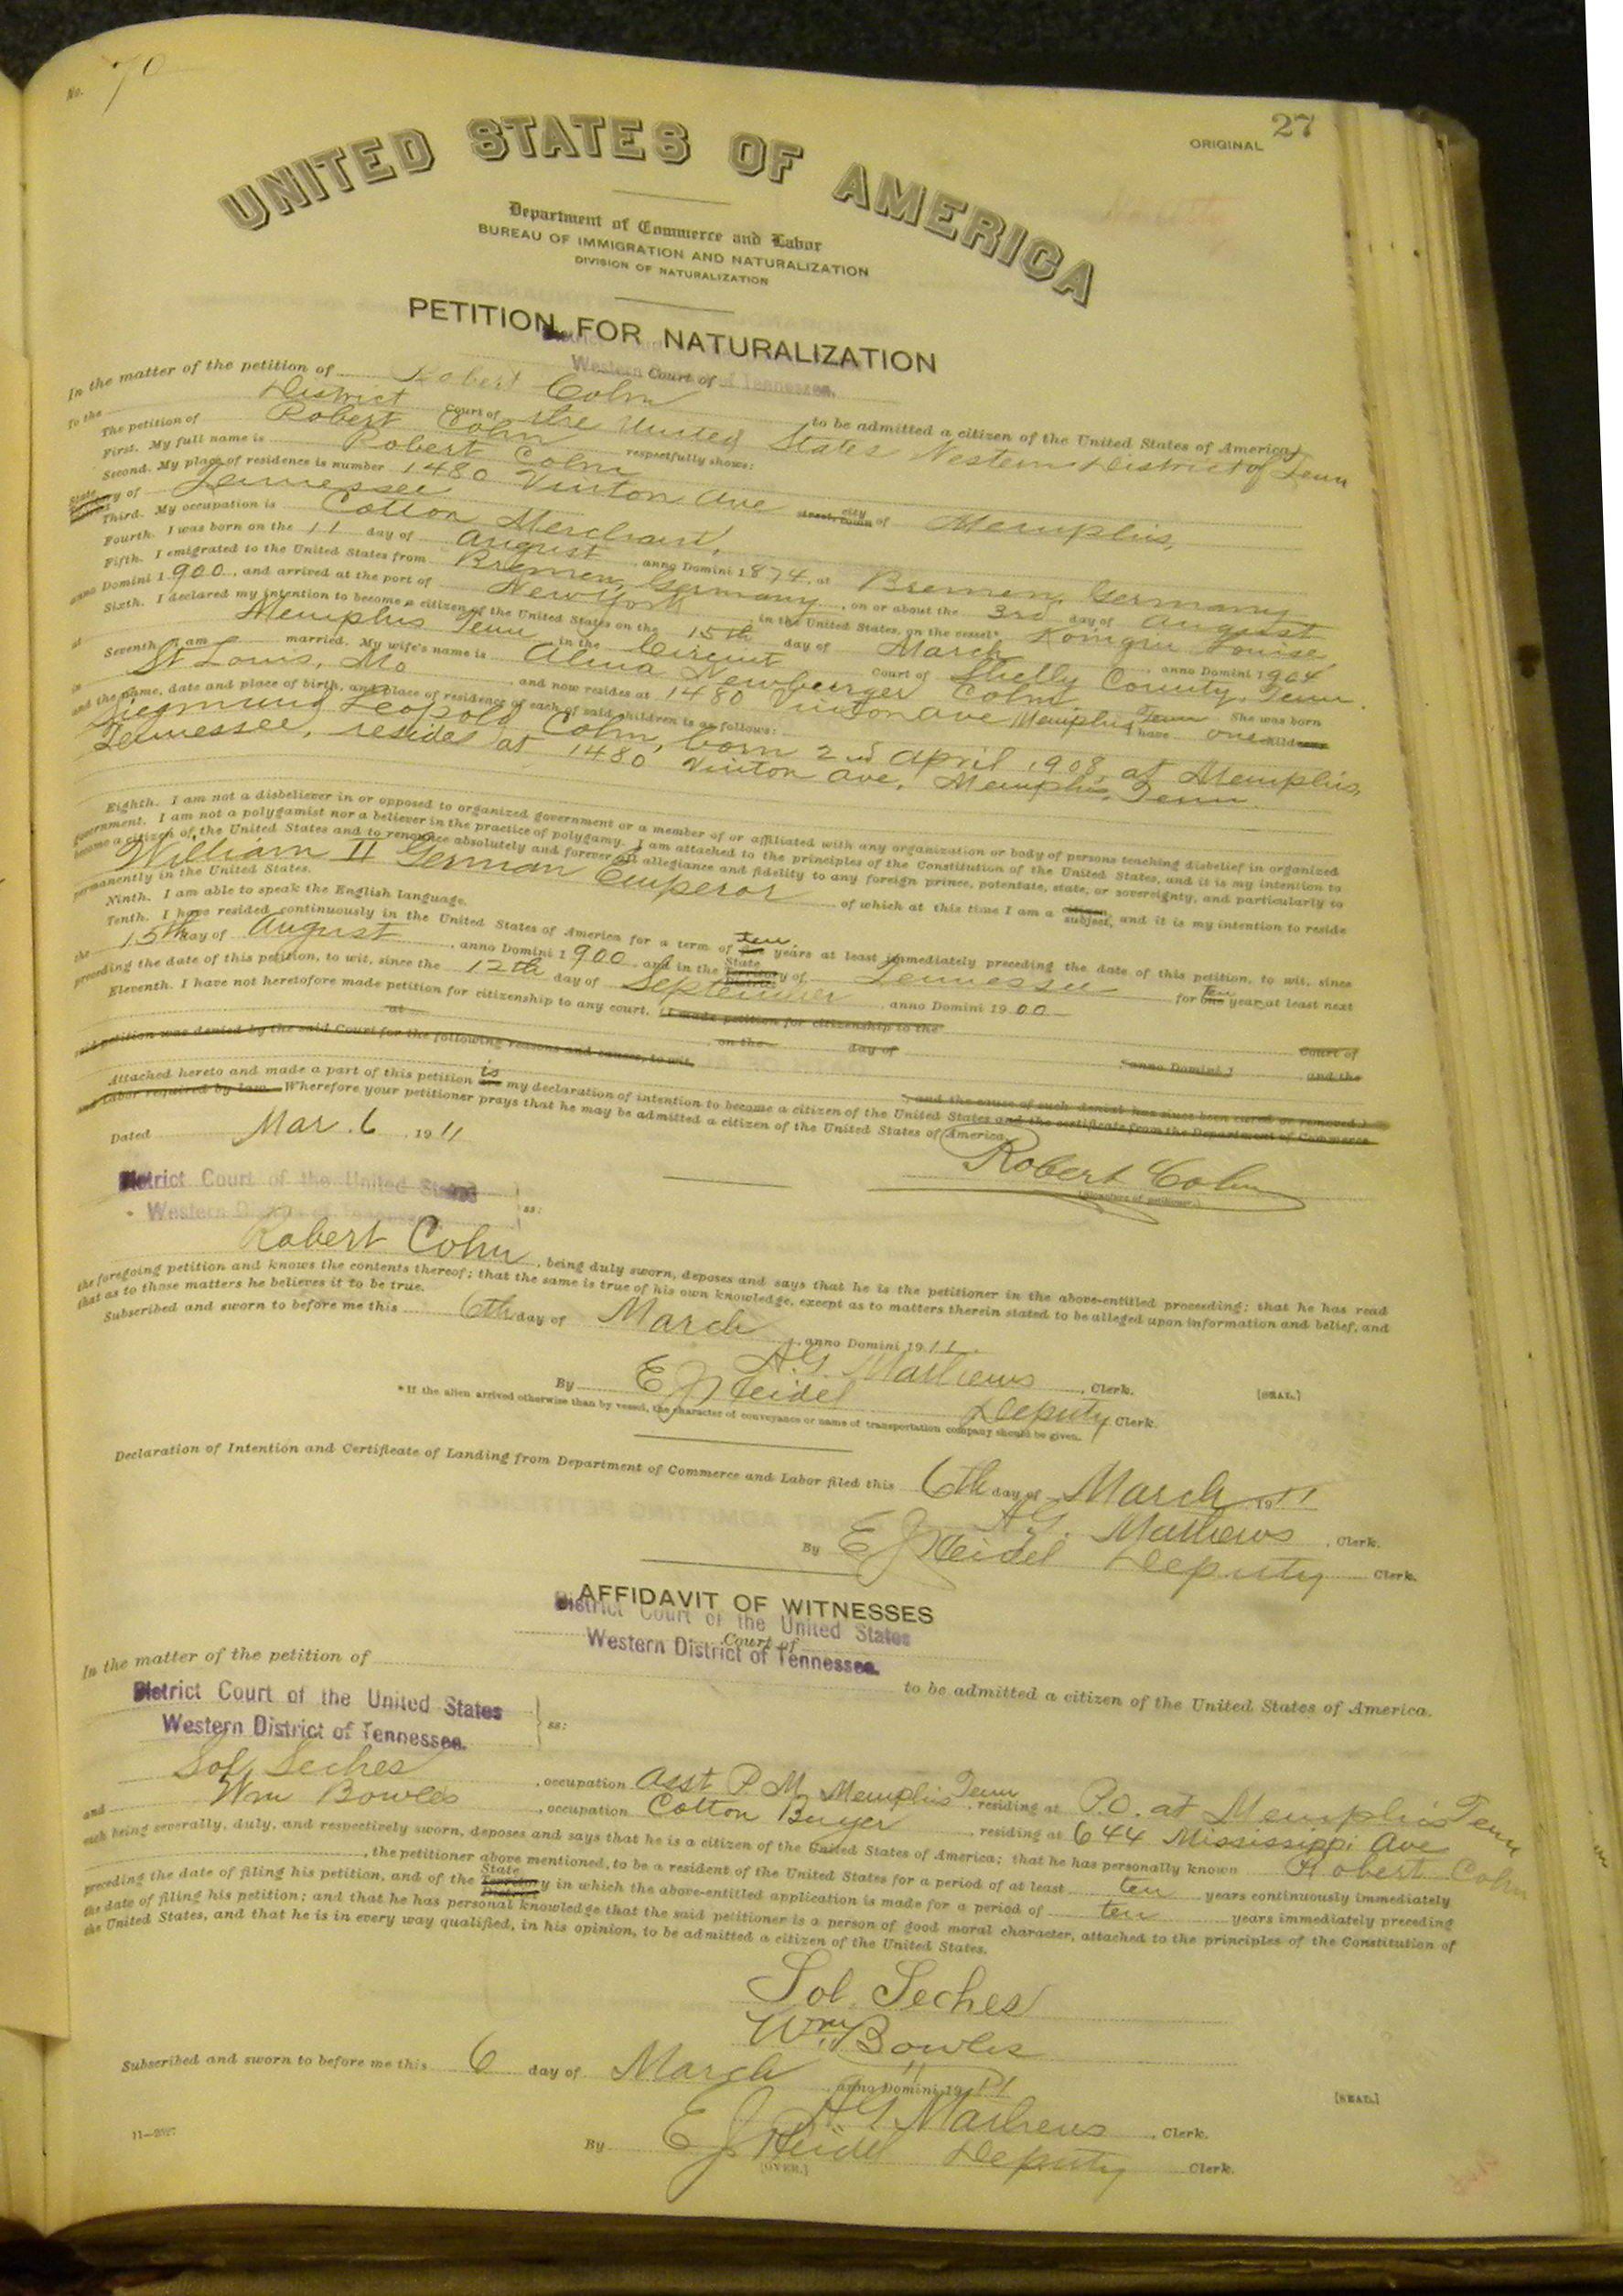 No. 70
ORIGINAL 27
UNITED STATES OF AMERICA
Department of Commerce and Labor
BUREAU OF IMMIGRATION AND NATURALIZATION
DIVISION OF NATURALIZATION
PETITION FOR NATURALIZATION
Western Court of of Tennessee.
In the matter of the petition of Robert Cohn to be admitted a citizen of the United States of America,
To the District Court of the United States Western District of Tenn
The petition of Robert Cohn respectfully shows:
First. My full name is Robert Cohn
Second. My place of residence is number 1480 Vinton Ave street, town city of Memphis,
State Territory of Tennessee
Third. My occupation is Cotton Merchant,
Fourth. I was born on the 11 day of August, anno Domini 1874, at Bremen, Germany
Fifth. I emigrated to the United States from Bremen, Germany, on or about the 3rd day of August
anno Domini 1900, and arrived at the port of New York, in the United States, on the vessel* Konigin Louise,
Sixth. I declared my intention to become a citizen of the United States on the 15th day of March, anno Domini 1904
at Memphis Tenn, in the Circuit Court of Shelby County, Tenn.
Seventh. I am married. My wife's name is Alma Newberger Cohn She was born
in St Louis, Mo, and now resides at 1480 Vinton ave Memphis Tenn have one children
and the name, date and place of birth, and place of residence of each of said children is as follows:
Siegmund Leopold Cohn, born 2nd April 1908, at Memphis,
Tennessee, resides at 1480 Vinton Ave, Memphis, Tenn
Eighth. I am not a disbeliever in or opposed to organized government or a member of or affiliated with any organization or body of persons teaching disbelief in organized
government. I am not a polygamist nor a believer in the practice of polygamy. I am attached to the principles of the Constitution of the United States, and it is my intention to
become a citizen of the United States and to renounce absolutely and forever all allegiance and fidelity to any foreign prince, potentate, state, or sovereignty, and particularly to
William II German Emperor of which at this time I am a citizen subject, and it is my intention to reside
permanently in the United States.
Ninth. I am able to speak the English language.
Tenth. I have resided continuously in the United States of America for a term of five ten years at least immediately preceding the date of this petition, to wit, since
the 15th day of August, anno Domini 1900, and in the State Territory District of Tennessee for one Ten year at least next
preceding the date of this petition, to wit, since the 12th day of September, anno Domini 1900
Eleventh. I have not heretofore made petition for citizenship to any court. (I made petition for citizenship to the Court of
at on the day of, anno Domini 1 and the
said petition was denied by the said Court for the following reasons and causes, to wit,
, and the cause of such denial has since been cured or removed.)
Attached hereto and made a part of this petition are is my declaration of intention to become a citizen of the United States and the certificate from the Department of Commerce
and Labor required by law. Wherefore your petitioner prays that he may be admitted a citizen of the United States of America.
Dated Mar. 6, 1911
Robert Cohn
(Signature of petitioner.)
District Court of the United States
Western District of Tennessee ss:
Robert Cohn, being duly sworn, deposes and says that he is the petitioner in the above-entitled proceeding; that he has read
the foregoing petition and knows the contents thereof; that the same is true of his own knowledge, except as to matters therein stated to be alleged upon information and belief, and
that as to those matters he believes it to be true.
Subscribed and sworn to before me this 6th day of March, anno Domini 1911.
A.G. Mathews, Clerk.
[SEAL.]
By E J Heidel Deputy Clerk.
*If the alien arrived otherwise than by vessel, the character of conveyance or name of transportation company should be given.
Declaration of Intention and Certificate of Landing from Department of Commerce and Labor filed this 6th day of March 1911
A.G. Mathews, Clerk.
By E J Heidel Deputy Clerk.
AFFIDAVIT OF WITNESSES
District Court of the United States
Court of
Western District of Tennessee.
In the matter of the petition of to be admitted a citizen of the United States of America.
District Court of the United States
Western District of Tennessee. ss:
Sol. Seches, occupation Asst P. M. Memphis Tenn, residing at P.O. at Memphis Tenn
and Wm Bowles, occupation Cotton Buyer, residing at 644 Mississippi Ave
each being severally, duly, and respectively sworn, deposes and says that he is a citizen of the United States of America; that he has personally known Robert Cohn
, the petitioner above mentioned, to be a resident of the United States for a period of at least ten years continuously immediately
preceding the date of filing his petition, and of the State Territory District in which the above-entitled application is made for a period of ten years immediately preceding
the date of filing his petition; and that he has personal knowledge that the said petitioner is a person of good moral character, attached to the principles of the Constitution of
the United States, and that he is in every way qualified, in his opinion, to be admitted a citizen of the United States.
Sol. Seches
Wm Bowles
Subscribed and sworn to before me this 6 day of March, anno Domini 1911
[SEAL.]
A G Mathews, Clerk.
By E J Heidel Deputy Clerk.
[OVER.]